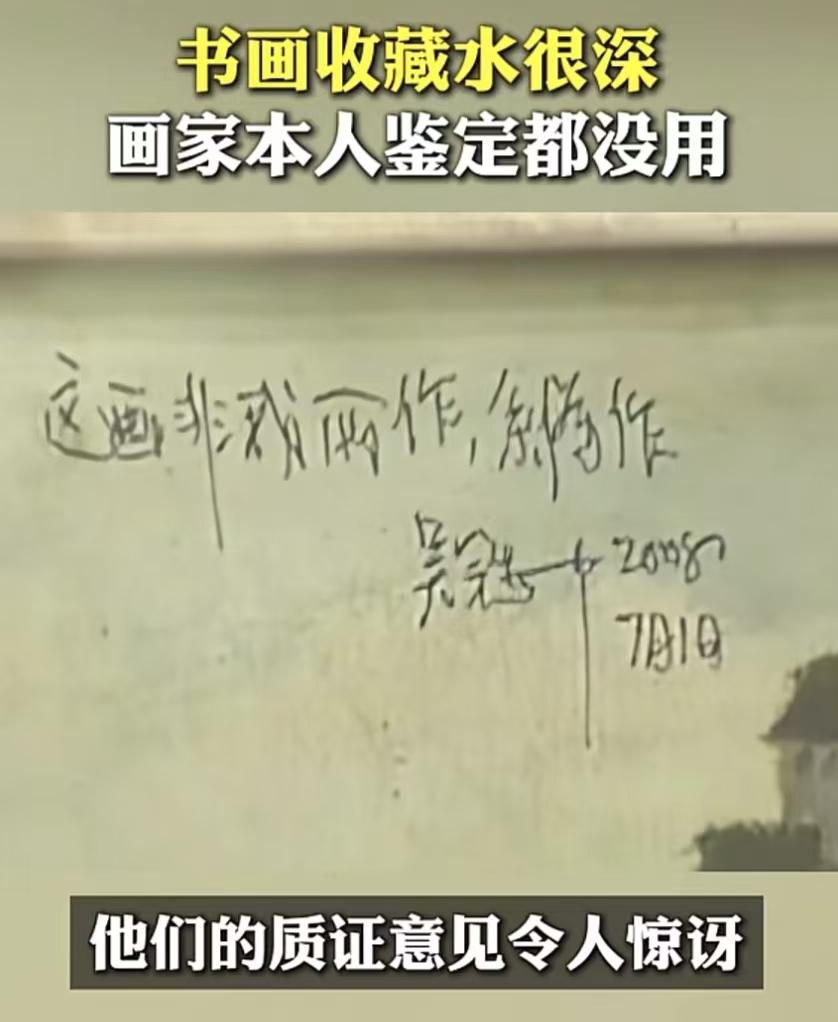 书画收藏水很深
画家本人鉴定都没用
这画非我所作,系伪作
吴冠中 2008
7月1日
他们的质证意见令人惊讶